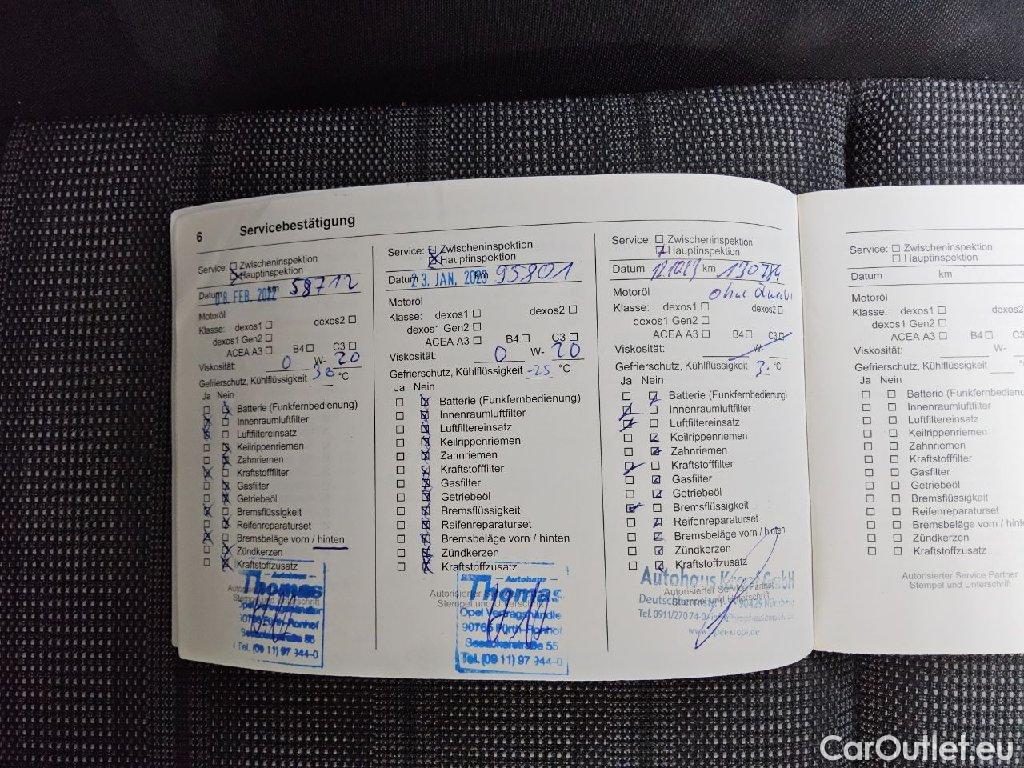 6 Servicebestätigung
Service: Zwischeninspektion
Hauptinspektion
Datum 08. FEB. 2022 58712
Motoröl
Klasse: dexos1 dexos2
dexos1 Gen2
ACEA A3 B4 C3
Viskosität: 0 W- 20
Gefrierschutz, Kühlflüssigkeit 38 °C
Ja Nein
Batterie (Funkfernbedienung)
Innenraumluftfilter
Luftfiltereinsatz
Keilrippenriemen
Zahnriemen
Kraftstofffilter
Gasfilter
Getriebeöl
Bremsflüssigkeit
Reifenreparaturset
Bremsbeläge vorn / hinten
Zündkerzen
Kraftstoffzusatz
Autohaus
Thomas
Stempel und
Tel. (09 11) 97 944-0
Service: Zwischeninspektion
Hauptinspektion
Datum 23. JAN. 2023 95801
Motoröl
Klasse: dexos1 dexos2
dexos1 Gen2
ACEA A3 B4 C3
Viskosität: 0 W- 20
Gefrierschutz, Kühlflüssigkeit -25 °C
Ja Nein
Batterie (Funkfernbedienung)
Innenraumluftfilter
Luftfiltereinsatz
Keilrippenriemen
Zahnriemen
Kraftstofffilter
Gasfilter
Getriebeöl
Bremsflüssigkeit
Reifenreparaturset
Bremsbeläge vorn / hinten
Zündkerzen
Kraftstoffzusatz
Autohaus
Thomas
Opel Vertragshändler
Stempel und Unterschrift
90765 Fürth-Ronhof
55
Tel. (09 11) 97 944-0
Service: Zwischeninspektion
Hauptinspektion
Datum km
Motoröl ohne
Klasse: dexos1 dexos2
dexos1 Gen2
ACEA A3 B4 C3
Viskosität: W-
Gefrierschutz, Kühlflüssigkeit °C
Ja Nein
Batterie (Funkfernbedienung)
Innenraumluftfilter
Luftfiltereinsatz
Keilrippenriemen
Zahnriemen
Kraftstofffilter
Gasfilter
Getriebeöl
Bremsflüssigkeit
Reifenreparaturset
Bremsbeläge vorn / hinten
Zündkerzen
Kraftstoffzusatz
Autohaus GmbH
Autorisierter Service Partner
90429 Nürnberg
Service: Zwischeninspektion
Hauptinspektion
Datum km
Motoröl
Klasse: dexos1
dexos1 Gen2
ACEA A3 B4
Viskosität: W-
Gefrierschutz, Kühlflüssigkeit
Ja Nein
Batterie (Funkfernbedienung
Innenraumluftfilter
Luftfiltereinsatz
Keilrippenriemen
Zahnriemen
Kraftstofffilter
Gasfilter
Getriebeöl
Bremsflüssigkeit
Reifenreparaturset
Bremsbeläge vorn / hinten
Zündkerzen
Kraftstoffzusatz
Autorisierter Service Partner
Stempel und Unterschrift
CarOutlet.eu